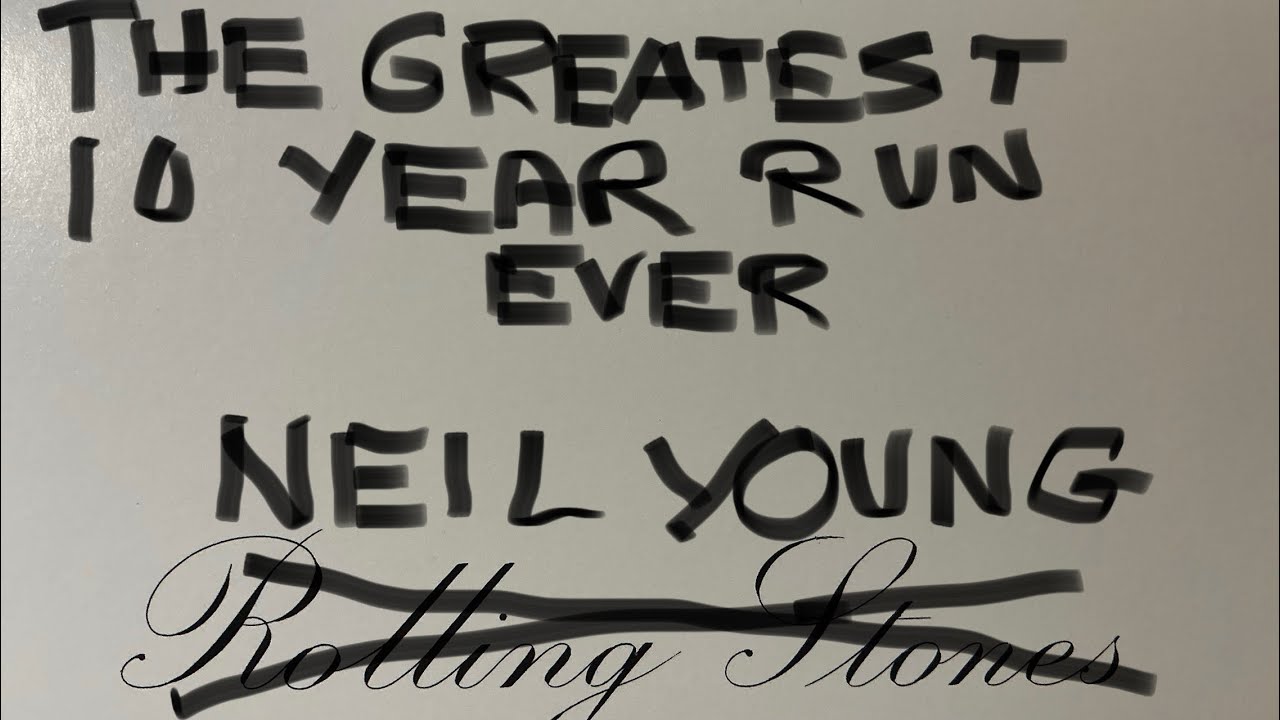 THE GREATEST
10 YEAR RUN
EVER
NEIL YOUNG
Rolling Stones